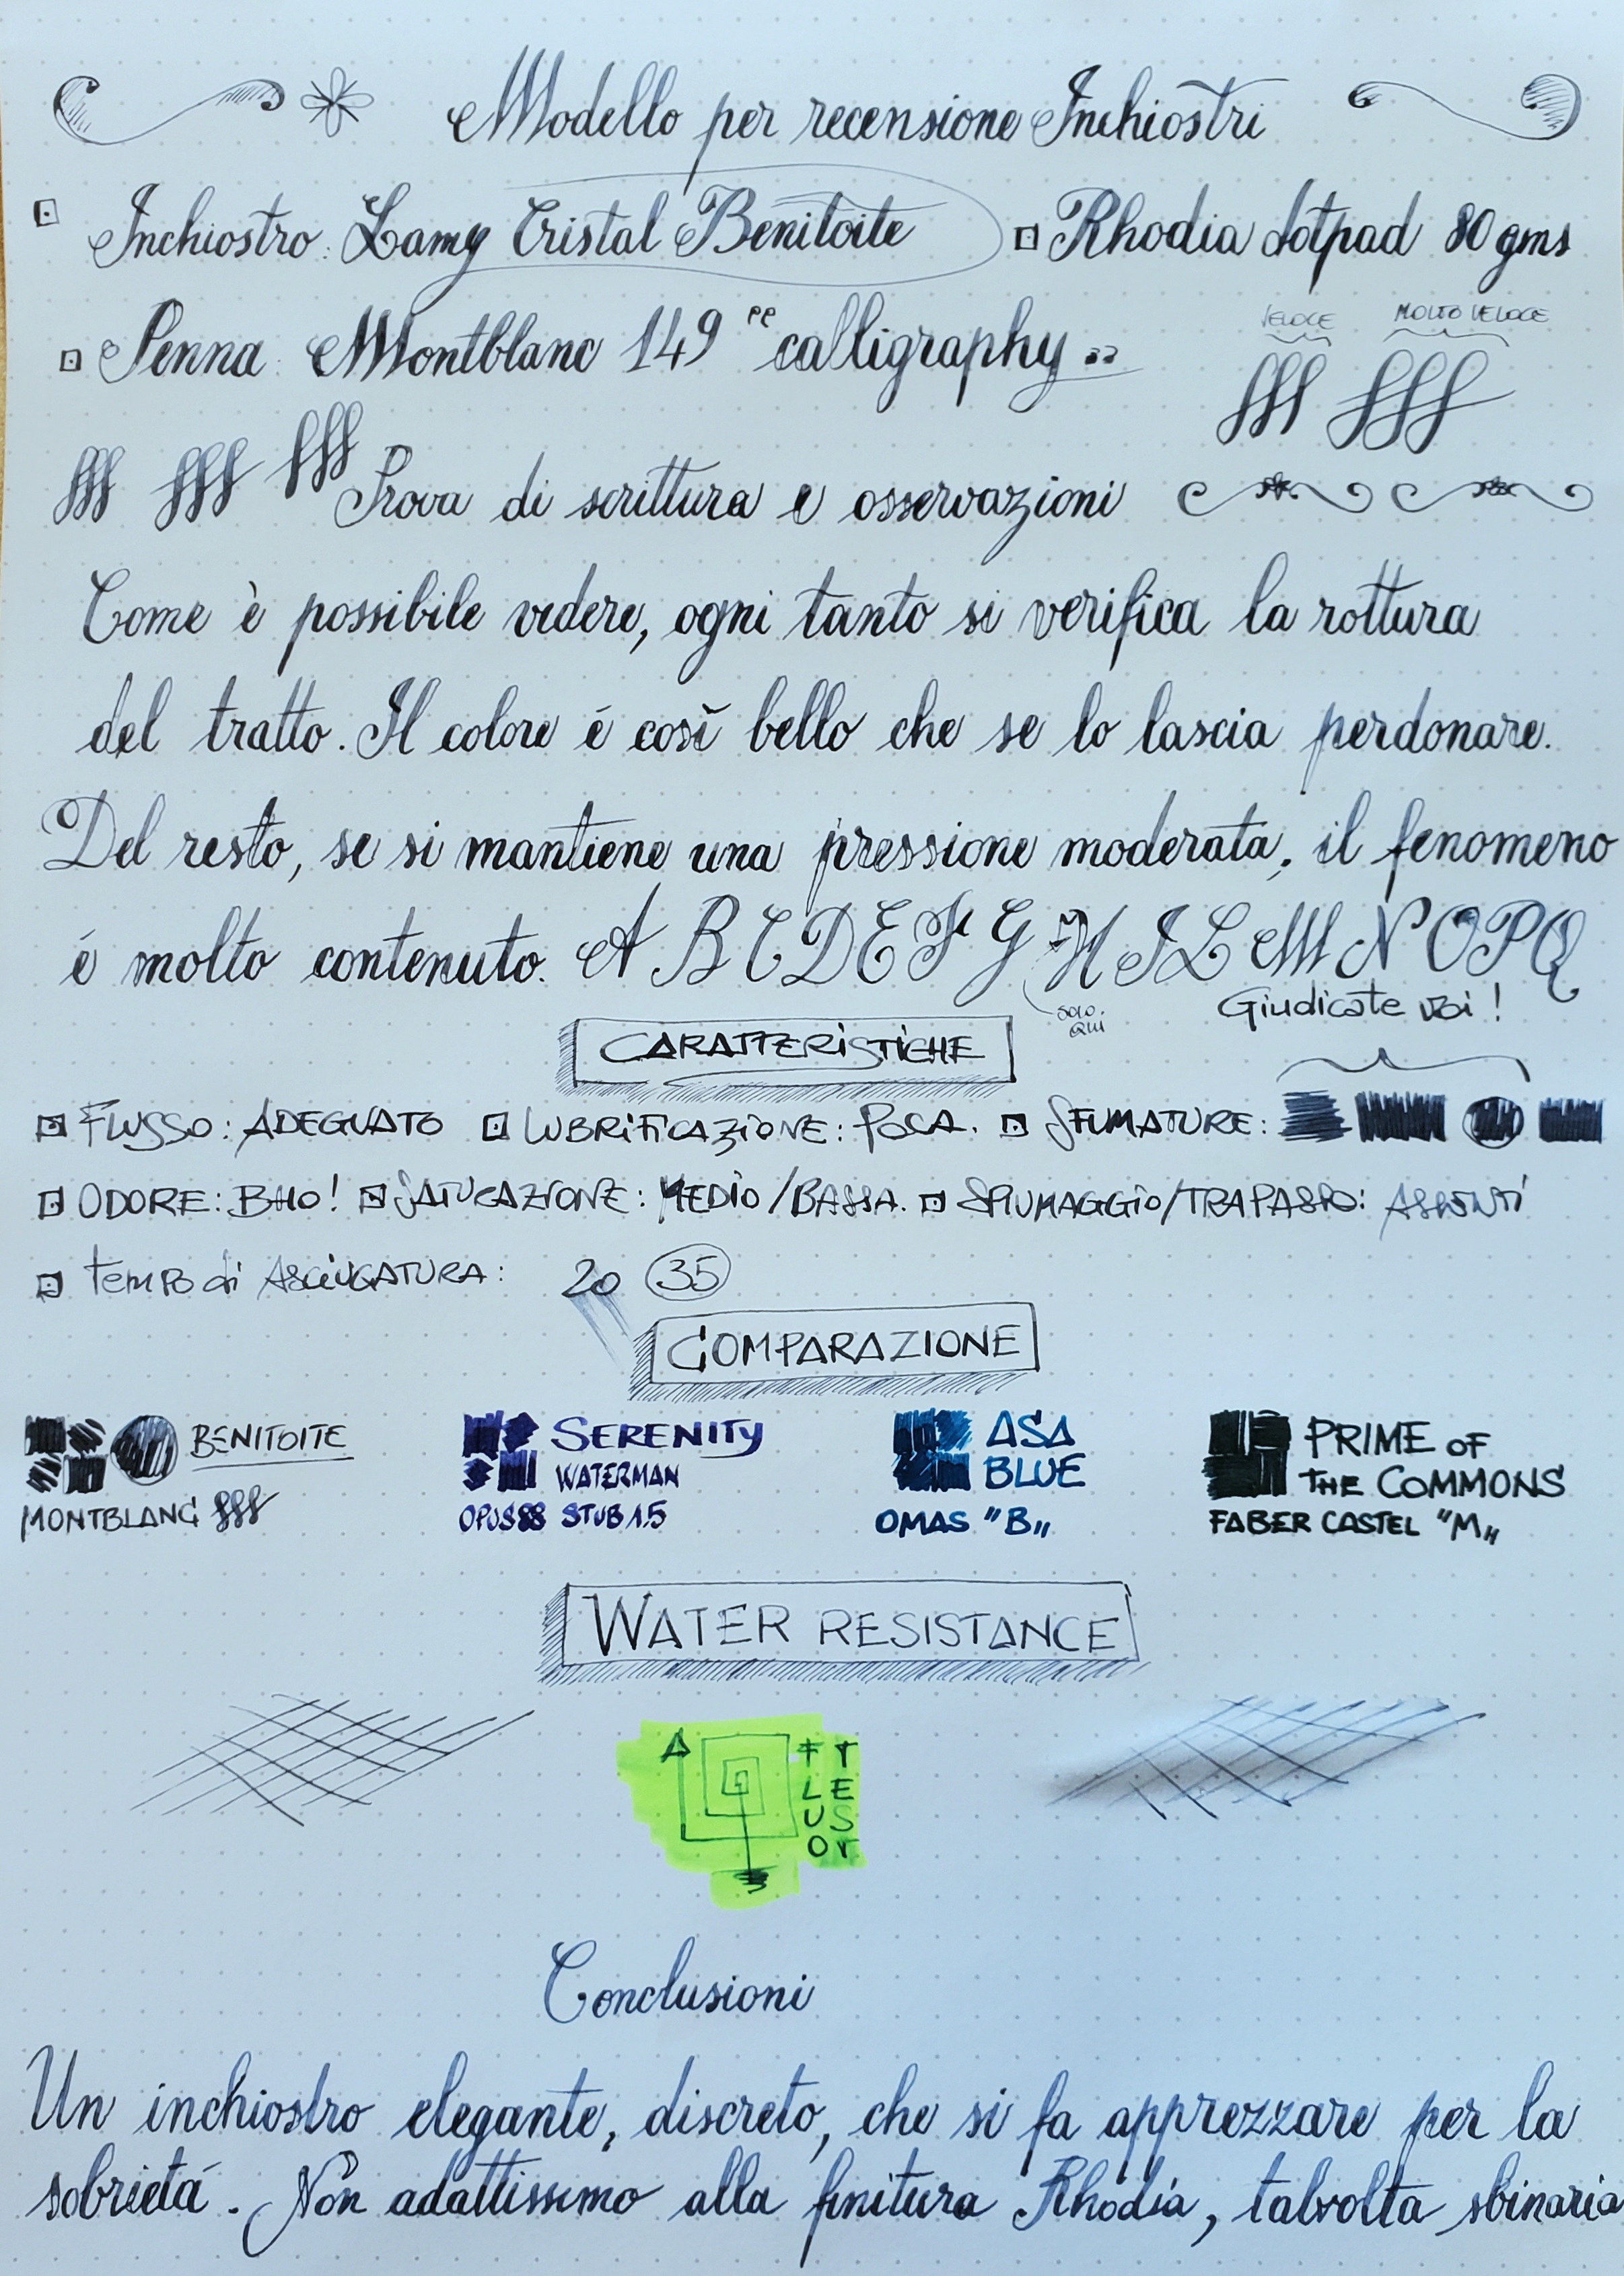 Modello per recensione Inchiostri
Inchiostro: Lamy Cristal Benitoite Rhodia dotpad 80 gms
Penna: Montblanc 149 "calligraphy"
VELOCE MOLTO VELOCE
Prova di scrittura e osservazioni
Come è possibile vedere, ogni tanto si verifica la rottura
del tratto. Il colore é così bello che se lo lascia perdonare.
Del resto, se si mantiene una pressione moderata, il fenomeno
é molto contenuto. A B C D E F G H I L M N O P Q
SOLO QUI
Giudicate voi!
CARATTERISTICHE
FLUSSO: ADEGUATO LUBRIFICAZIONE: POCA. SFUMATURE:
ODORE: BHO! SATURAZIONE: MEDIO/BASSA. SPIUMAGGIO/TRAPASSO: ASSENTI
TEMPO di ASCIUGATURA: 20 35
COMPARAZIONE
BENITOITE
MONTBLANC
SERENITY
WATERMAN
OPUS 88 STUB 1.5
ASA
BLUE
OMAS "B"
PRIME OF
THE COMMONS
FABER CASTEL "M"
WATER RESISTANCE
A FLUO TEST
Conclusioni
Un inchiostro elegante, discreto, che si fa apprezzare per la
sobrietá. Non adattissimo alla finitura Rhodia, talvolta sbinaria